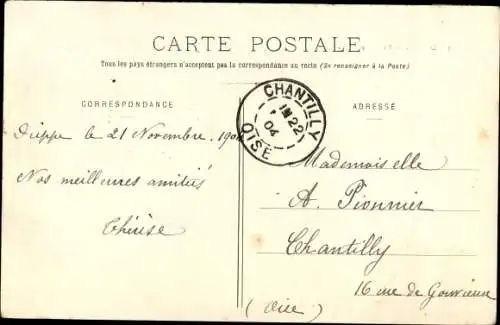 CARTE POSTALE
Tous les pays étrangers n'acceptent pas la correspondance au recto (Se renseigner à la Poste)
CORRESPONDANCE
ADRESSE
CHANTILLY
22
04
OISE
Dieppe le 21 Novembre 1904
Nos meilleures amitiés
Thérèse
Mademoiselle
A. Pionnier
Chantilly
16 rue de Gouvieux
(Oise)